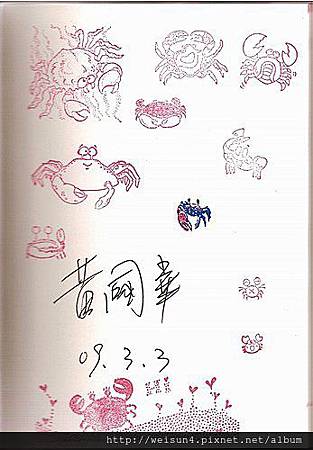 黃國華
09.3.3
http://weisun4.pixnet.net/album